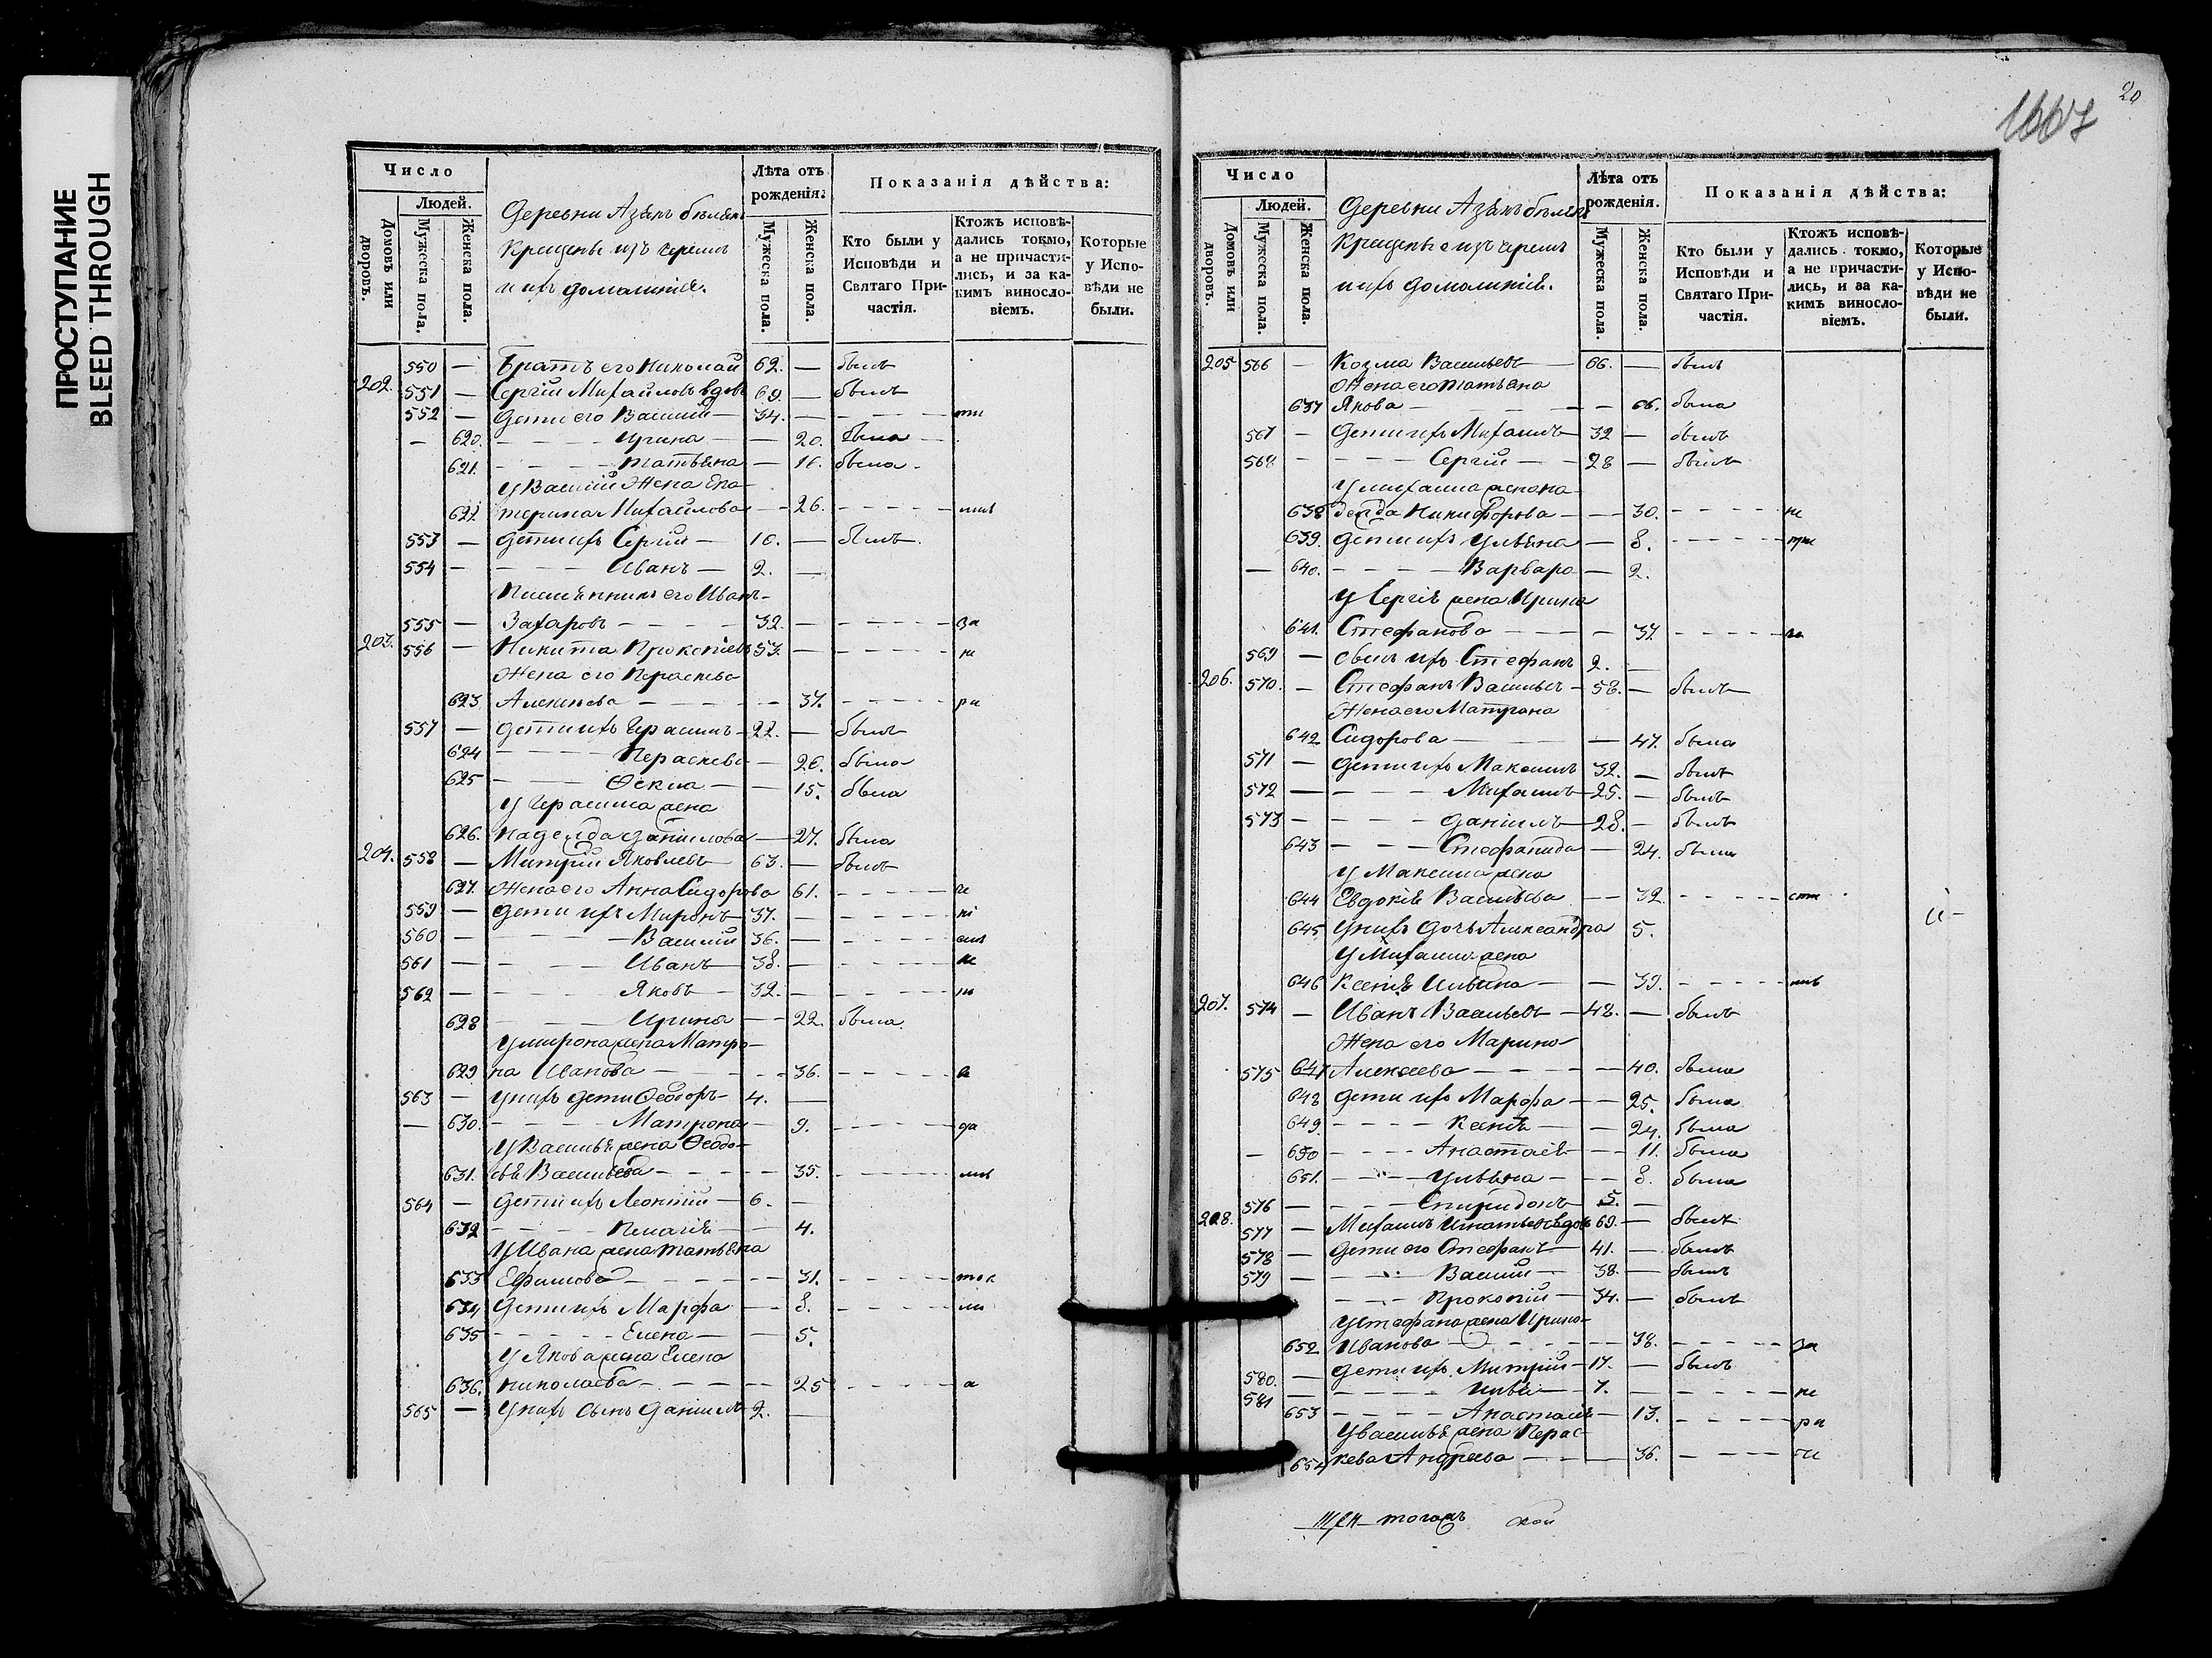 ПРОСТУПАНИЕ
BLEED THROUGH
Число
Людей.
Домовъ или дворовъ.
Мужеска пола.
Женска пола.
Деревни Азякъ
крещеные изъ черемъ
и ихъ домашніе.
Лѣта отъ рожденія:
Мужеска пола.
Женска пола.
Показанія дѣйства:
Кто были у Исповѣди и Святаго Причастія.
Ктожъ исповѣдались токмо, а не причастились, и за какимъ винословіемъ.
Которые у Исповѣди не были.
550 — Братъ его Николай 62. — былъ
202. 551 — Сергій Михайловъ вдовъ 69. — былъ
552 — Дети его Василій — 34. —
— 620. Ирина — 20. была
621. Татьяна — 16. была
У Василія Жена Ека-
622 терина Михайлова — 26.
553 — Дети ихъ Сергій — 10. — былъ
554 — Иванъ — 2. —
Племянникъ его Иванъ
555 — Захаровъ 32. — за
203. 556 — Никита Прокопіевъ 53. — не
Жена его Параскева
623 Алексѣева — 37. ра
557 — Дети ихъ Герасимъ — 22. — былъ
624 Параскева — 20. была
625 Ѳекла — 15. была
У Герасима жена
626. Надежда Даніилова — 27. была
204. 558 — Митрій Яковлевъ 63. — былъ
627. Жена его Анна Сидорова 61.
559 — Дети ихъ Миронъ — 37. —
560 — Василій 36. —
561 — Иванъ — 38. — не
562 — Яковъ — 32. —
628 Ирина — 22. была
У Мирона жена Матро-
629 на Иванова — 36.
563 — У нихъ дети Ѳеодоръ — 4. —
— 630. Матрона — 9. да
У Василья жена Ѳеодо-
631. Васильева — 35.
564 — Дети ихъ Леонтій — 6. —
632 Пелагія — 4.
У Ивана жена Татьяна
633 Ефимова — 31. ток
634 Дети ихъ Марфа — 8. мо
635 Елена — 5.
У Якова жена Елена
636. Николаева — 25 а
565 — У нихъ сынъ Даніилъ 2. —
20
1667
Число
Людей.
Домовъ или дворовъ.
Мужеска пола.
Женска пола.
Деревни Азякъ
крещеные изъ черемъ
и ихъ домашніе.
Лѣта отъ рожденія.
Мужеска пола.
Женска пола.
Показанія дѣйства:
Кто были у Исповѣди и Святаго Причастія.
Ктожъ исповѣдались токмо, а не причастились, и за какимъ винословіемъ.
Которые у Исповѣди не были.
205 566 — Козма Васильевъ — 66. — былъ
Жена его Татьяна
637 Якова — 66. была
567 — Дети ихъ Михаилъ — 32 — былъ
568 Сергій — 28 — былъ
У Михаила жена На-
638 дежда Никифорова — 30. не
639. Дети ихъ Ульяна — 8. при
— 640. Варвара — 2.
У Сергія жена Ирина
641. Стефанова — 37.
569 — Сынъ ихъ Стефанъ 2. —
206. 570. — Стефанъ Васильевъ — 58. — былъ
Жена его Матрона
642 Сидорова — 47. была
571 — Дети ихъ Максимъ 32. — былъ
572 — Михаилъ — 25. — былъ
573 — Даніилъ — 28. — былъ
643 Стефанида — 24. была
У Максима жена
644 Евдокія Васильева — 32 сти
645 У нихъ дочь Александра 5.
У Михаила жена
646 Ксенія Ильина — 39.
207. 574 — Иванъ Васильевъ — 48. — былъ
Жена его Марина
575 647 Алексеева — 40. была
648 Дети ихъ Марфа — 25. была
649 Ксенія — 24. была
— 650 Анастасія — 11. была
651. Ульяна — 8. была
576 — Спиридонъ 5. —
208. 577 — Михаилъ Игнатьевъ вдовъ 69. — былъ
578 — Дети его Стефанъ — 41. — былъ
579 — Василій — 38. — былъ
Прокопій — 34. — былъ
У Стефана жена Ирина
652 Иванова — 38. за
580. — Дети ихъ Митрій — 17. — былъ
581 — Илья — 7. — не
653 Анастасія — 13. ра
У Василья жена Парас-
654 кева Андреева — 36.